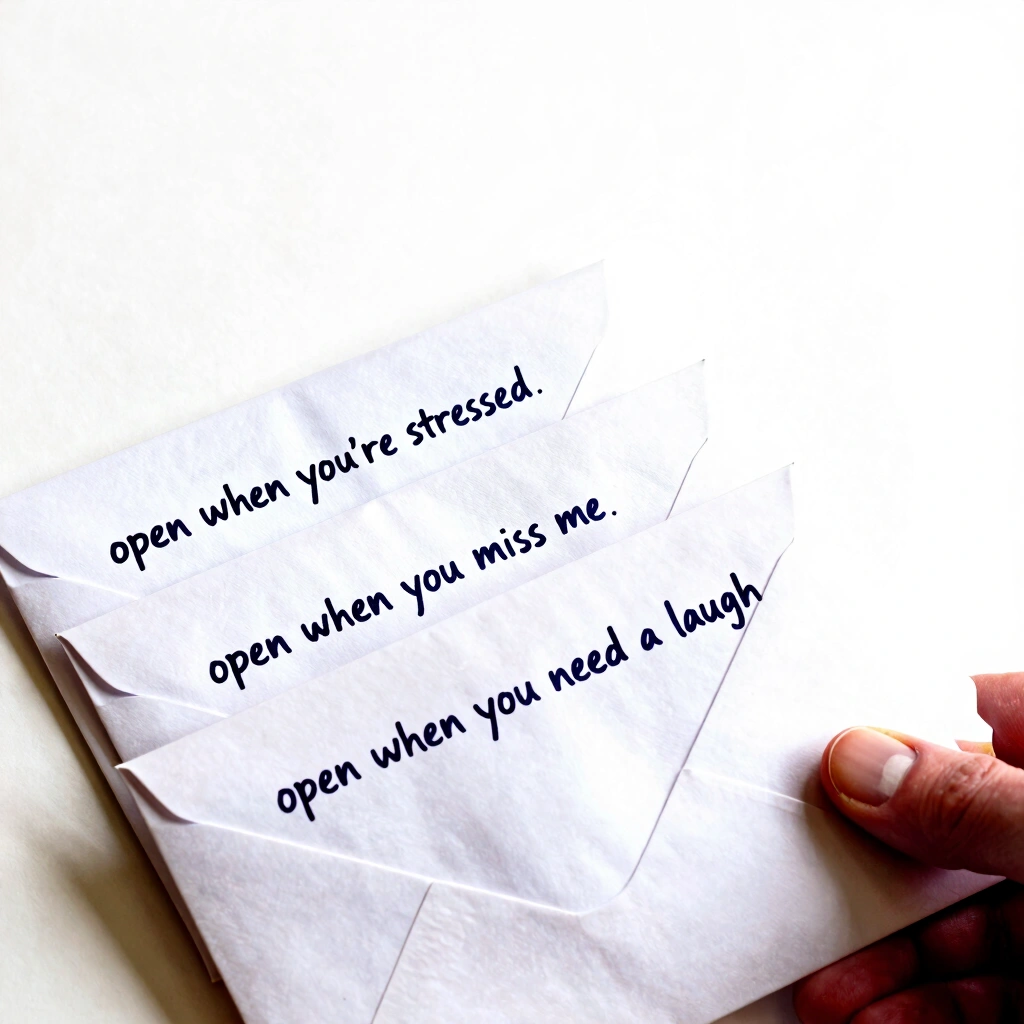 open when you're stressed.
open when you miss me.
open when you need a laugh